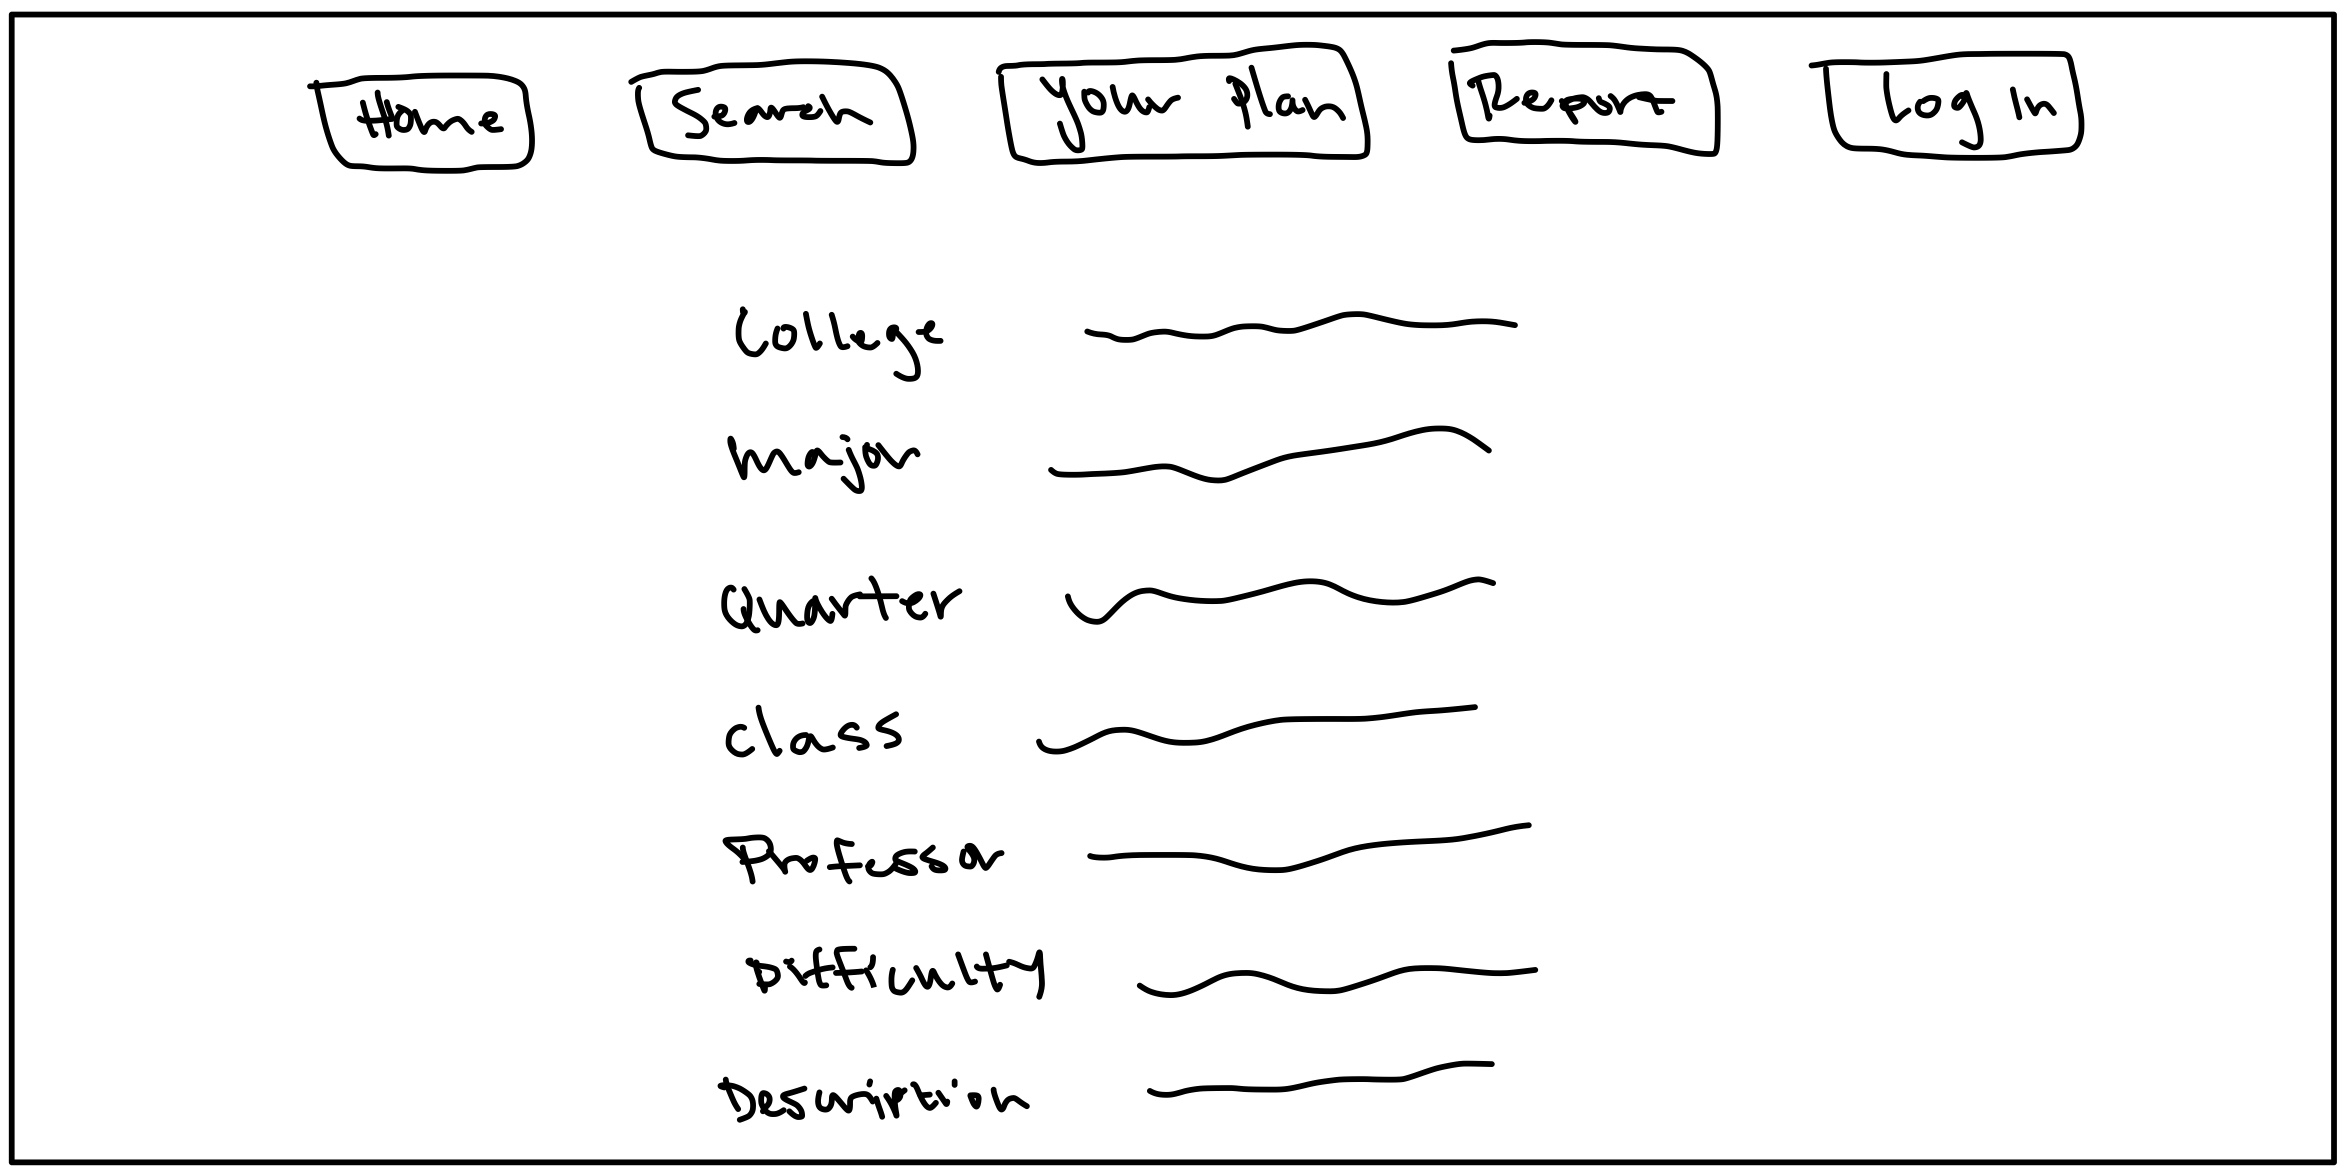 Home Search Your Plan Report Log In
College
Major
Quarter
Class
Professor
Difficulty
Description